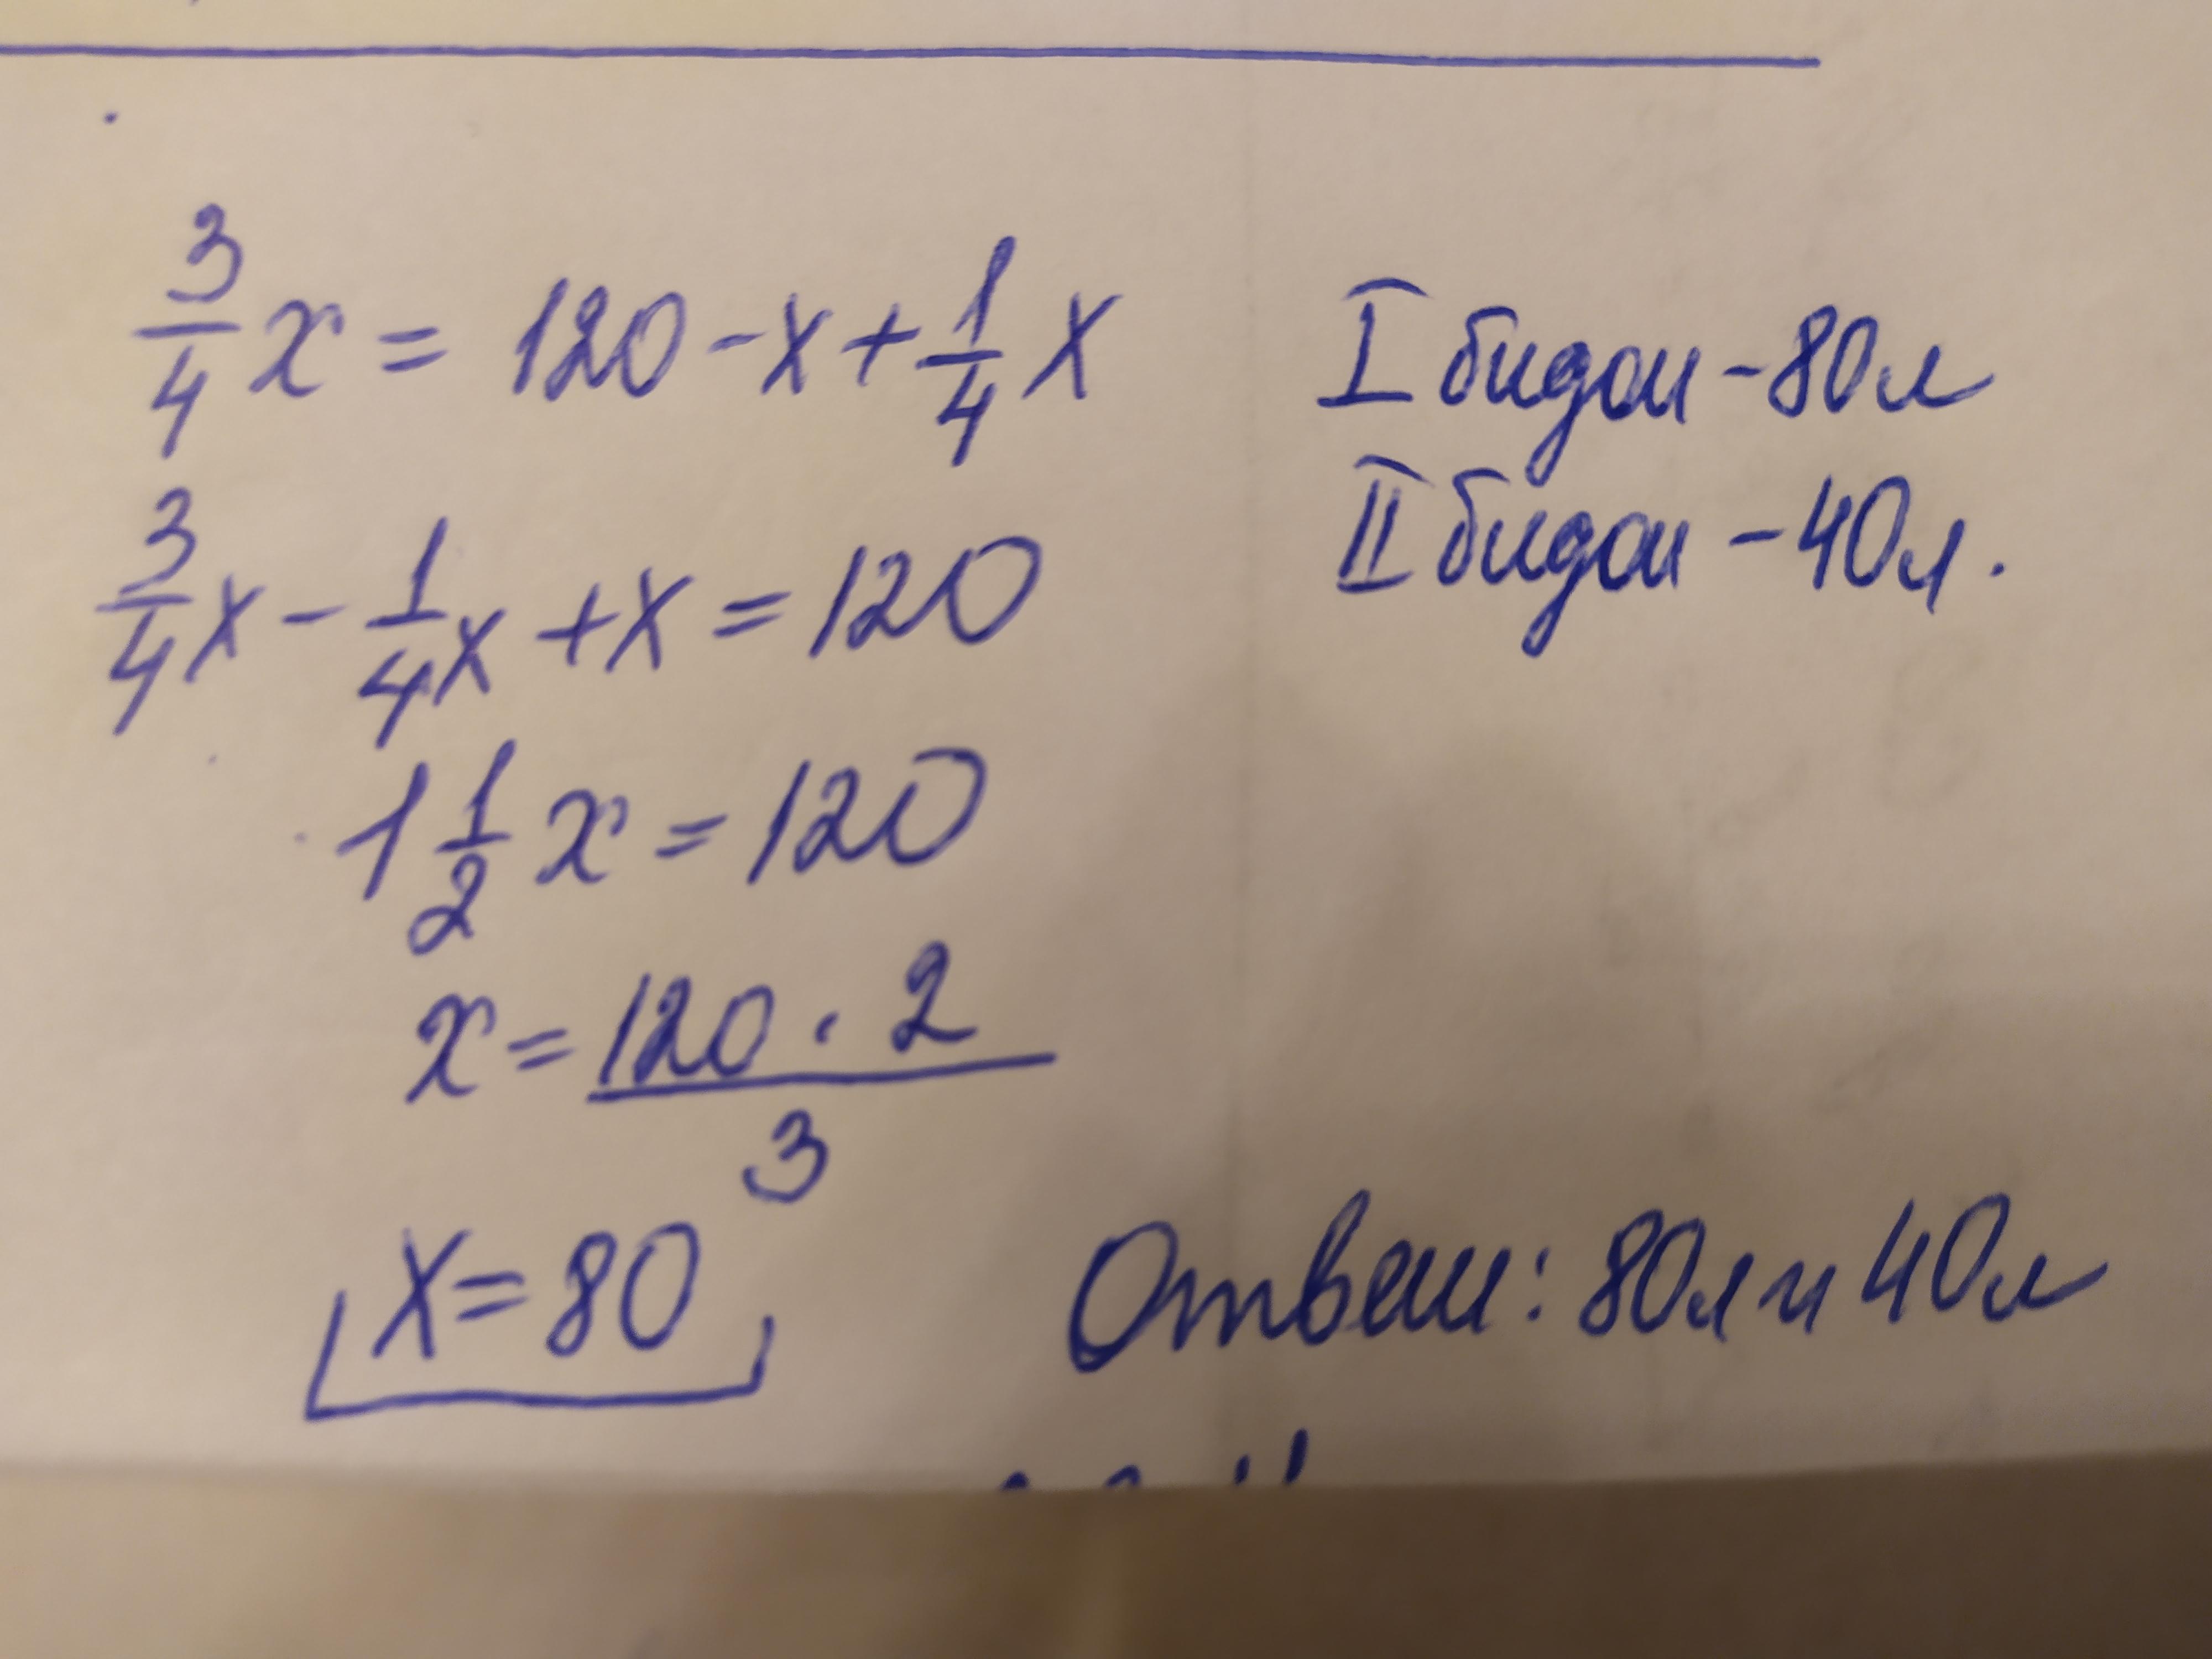 3/4 x = 120 - x + 1/4 x
3/4 x - 1/4 x + x = 120
1 1/2 x = 120
x = 120 · 2 / 3
x = 80
I бидон - 80 л
II бидон - 40 л.
Ответ: 80 л и 40 л